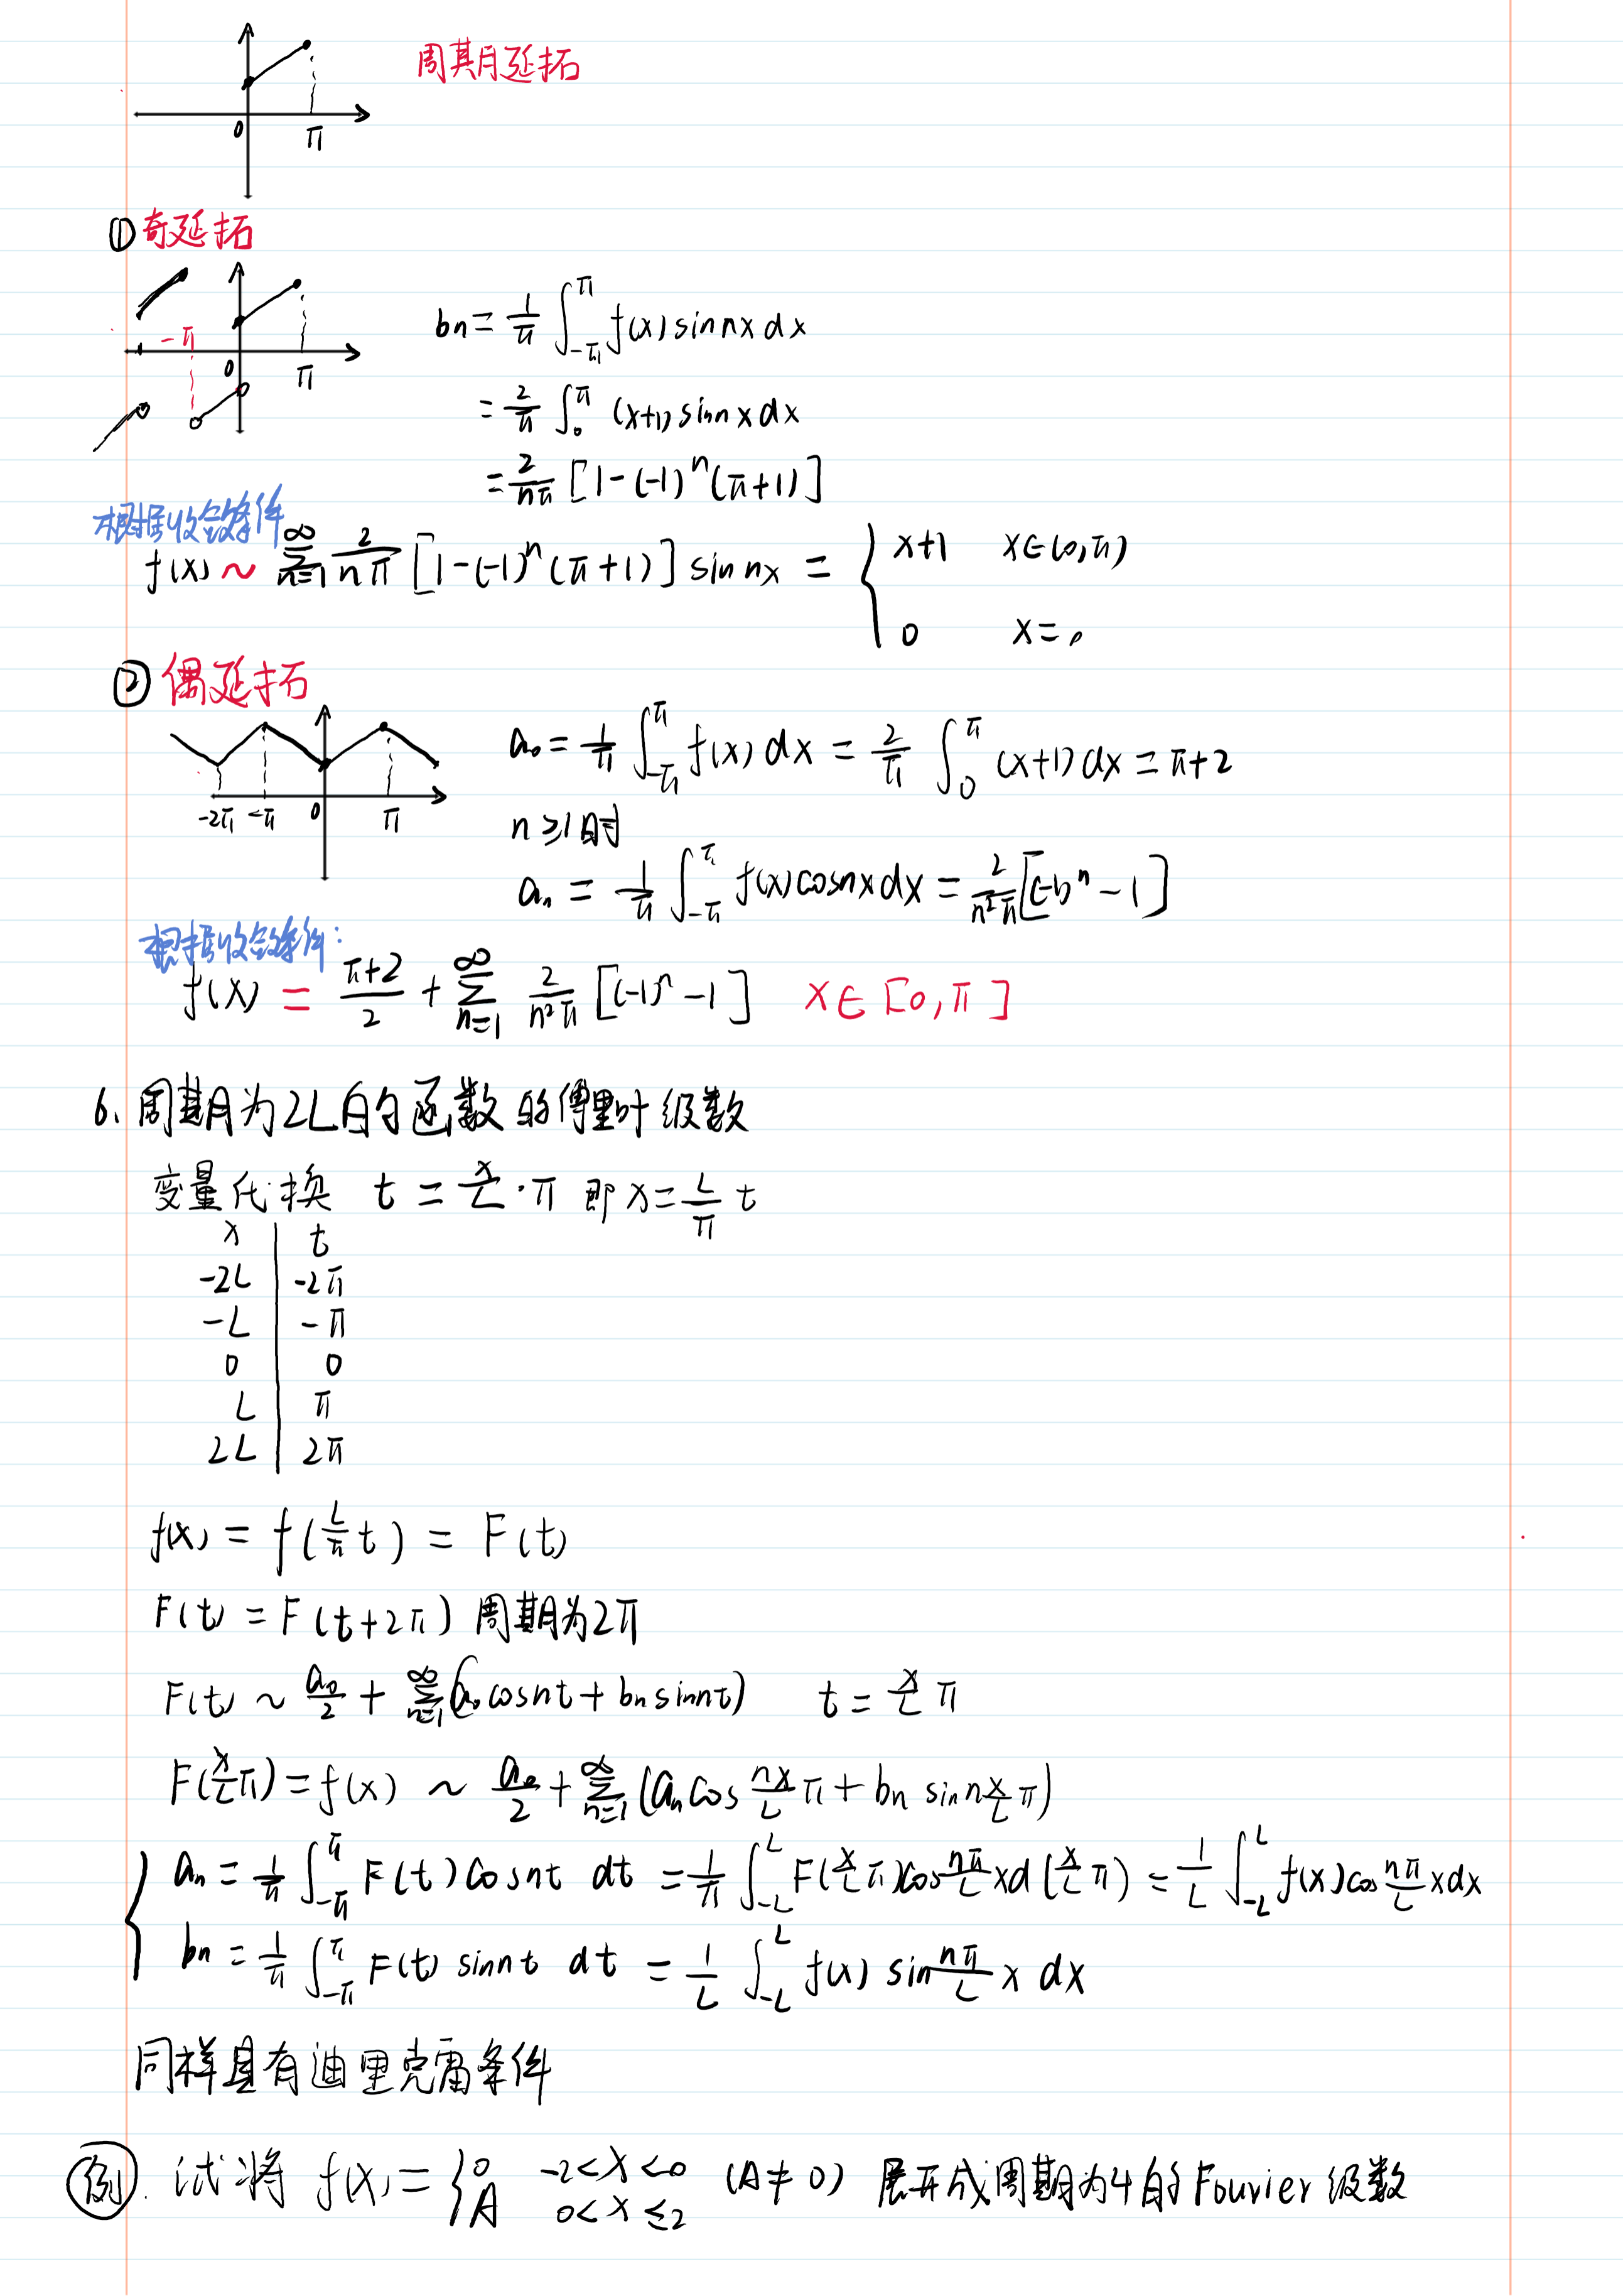 周期延拓
0 π
① 奇延拓
-π 0 π
bn = 1/π ∫_{-π}^{π} f(x) sin nx dx
= 2/π ∫_0^π (x+1) sin nx dx
= 2/(nπ) [1-(-1)^n (π+1)]
根据收敛条件
f(x) ~ ∑_{n=1}^∞ 2/(nπ) [1-(-1)^n (π+1)] sin nx = { x+1 x∈(0,π)
0 x=0
② 偶延拓
-2π -π 0 π
a₀ = 1/π ∫_{-π}^{π} f(x) dx = 2/π ∫_0^π (x+1) dx = π+2
n≥1时
an = 1/π ∫_{-π}^{π} f(x) cos nx dx = 2/(n²π) [(-1)^n - 1]
根据收敛条件:
f(x) = (π+2)/2 + ∑_{n=1}^∞ 2/(n²π) [(-1)^n - 1] x∈[0,π]
6、周期为2L的函数的傅里叶级数
变量代换 t = x/L · π 即 x = L/π t
x t
-2L -2π
-L -π
0 0
L π
2L 2π
f(x) = f(L/π t) = F(t)
F(t) = F(t+2π) 周期为2π
F(t) ~ a₀/2 + ∑_{n=1}^∞ (an cos nt + bn sin nt) t = x/L π
F(x/L π) = f(x) ~ a₀/2 + ∑_{n=1}^∞ (an cos nx/L π + bn sin n x/L π)
{ an = 1/π ∫_{-π}^{π} F(t) cos nt dt = 1/π ∫_{-L}^{L} F(x/L π) cos nπ/L x d(x/L π) = 1/L ∫_{-L}^{L} f(x) cos nπ/L x dx
bn = 1/π ∫_{-π}^{π} F(t) sin nt dt = 1/L ∫_{-L}^{L} f(x) sin nπ/L x dx
同样具有迪里克雷条件
例. 试将 f(x) = { 0 -2<x<0 (A≠0) 展开成周期为4的Fourier级数
A 0<x≤2